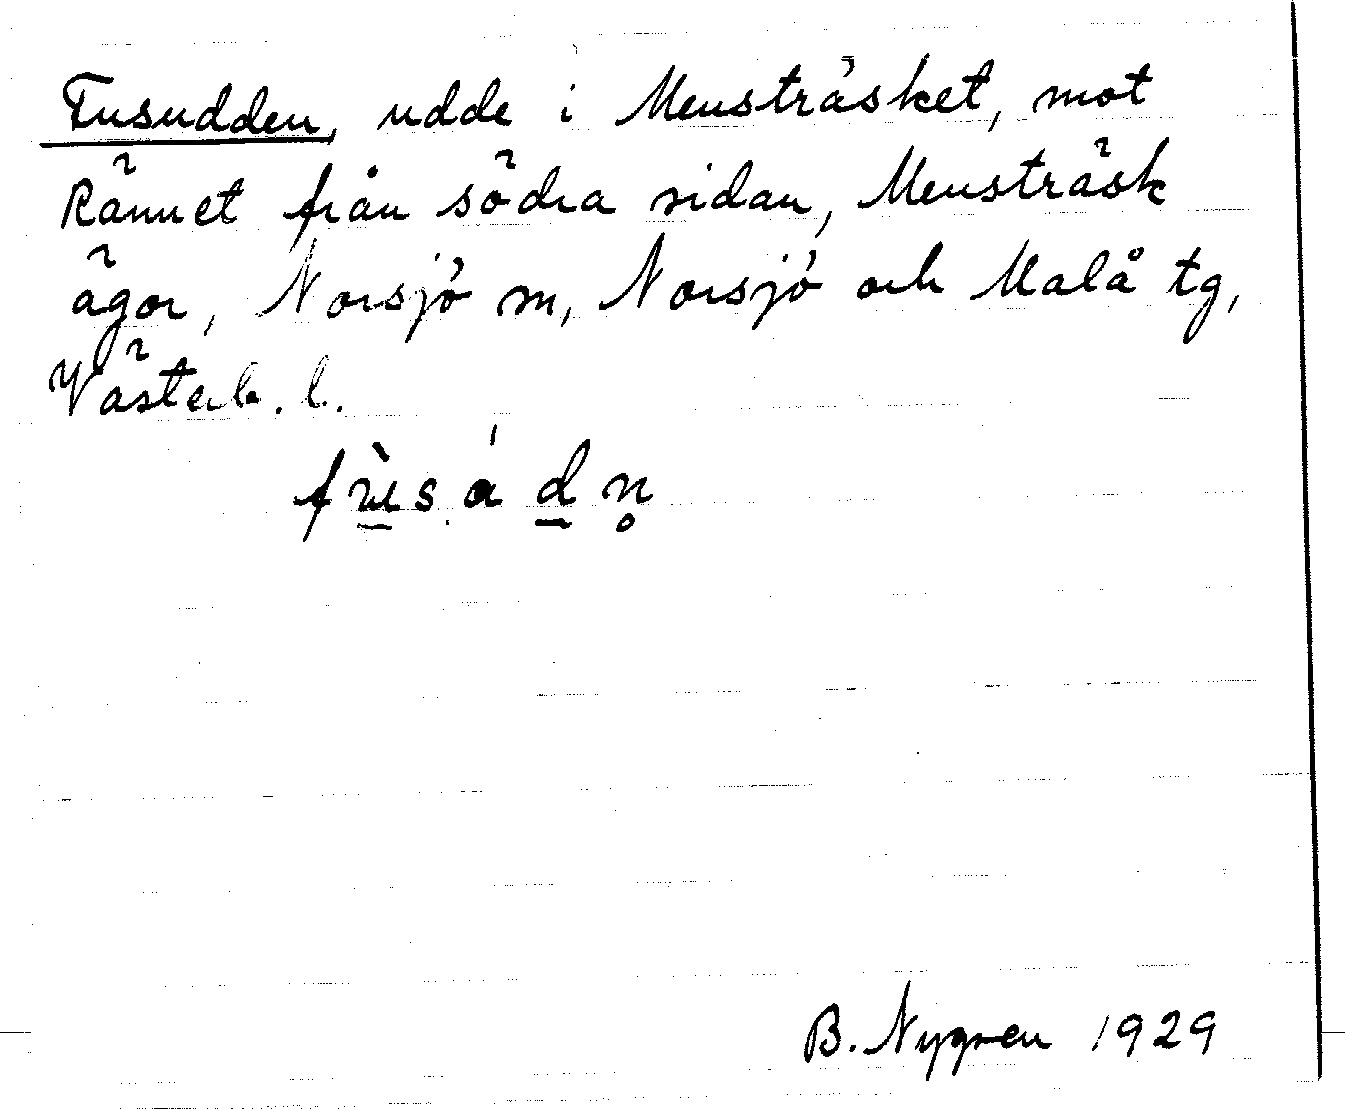 Fusudden, udde i Mensträsket, mot
Rännet från södra sidan, Mensträsk
ägor, Norsjö sn, Norsjö och Malå tg,
Västerb. l.
fù̲sa̍d̲n̥
B. Nygren 1929